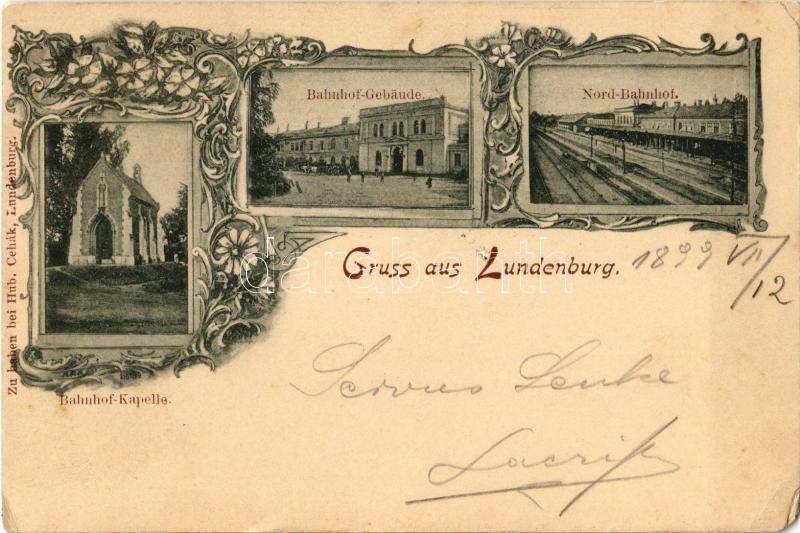 Zu haben bei Hub. Cehák, Lundenburg.
Bahnhof-Gebäude.
Nord-Bahnhof.
Bahnhof-Kapelle.
Gruss aus Lundenburg.
1899 VII/12
Servus Lenke
darabanth